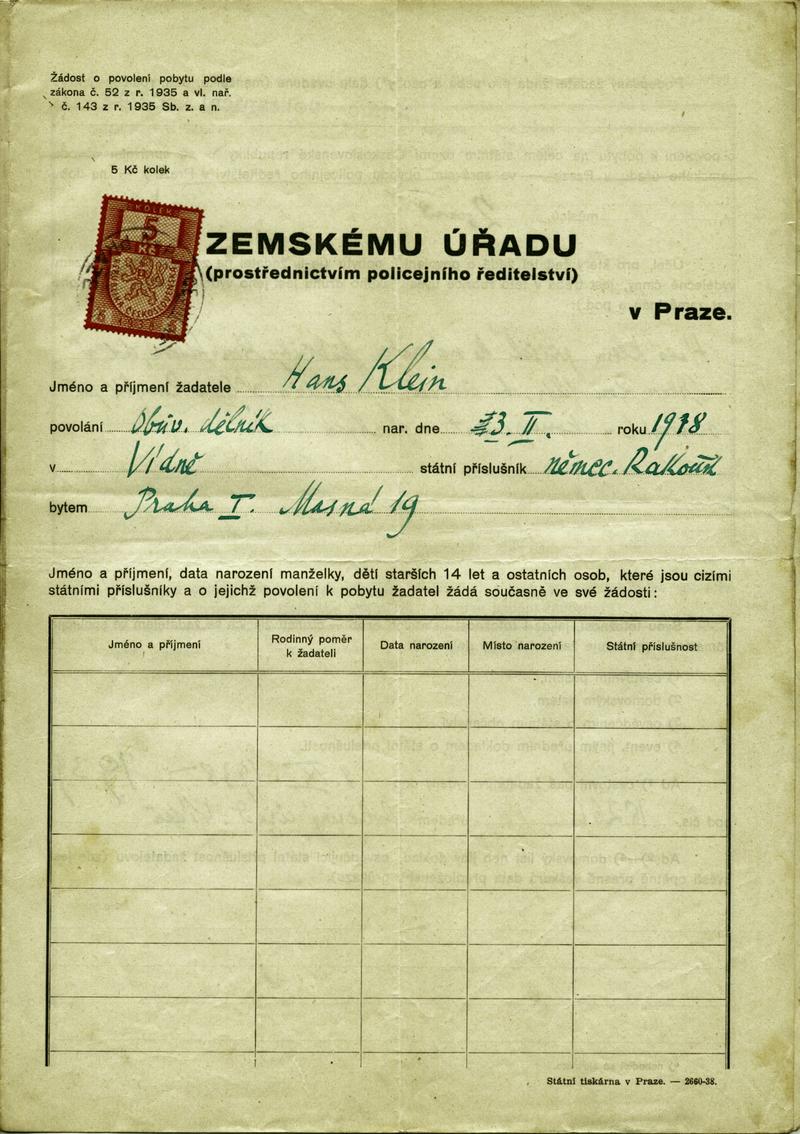 Žádost o povolení pobytu podle
zákona č. 52 z r. 1935 a vl. nař.
č. 143 z r. 1935 Sb. z. a n.
5 Kč kolek
KOLEK
5
Kč
ZEMSKÉMU ÚŘADU
(prostřednictvím policejního ředitelství)
v Praze.
Jméno a příjmení žadatele Hans Klein
povolání Obuv. dělník nar. dne 23. II. roku 1918
v Vídně státní příslušník němec. Rakouš
bytem Praha I. Masná 19
Jméno a příjmení, data narození manželky, dětí starších 14 let a ostatních osob, které jsou cizími
státními příslušníky a o jejichž povolení k pobytu žadatel žádá současně ve své žádosti:
Jméno a příjmení Rodinný poměr k žadateli Data narození Místo narození Státní příslušnost
Státní tiskárna v Praze. — 2660-38.